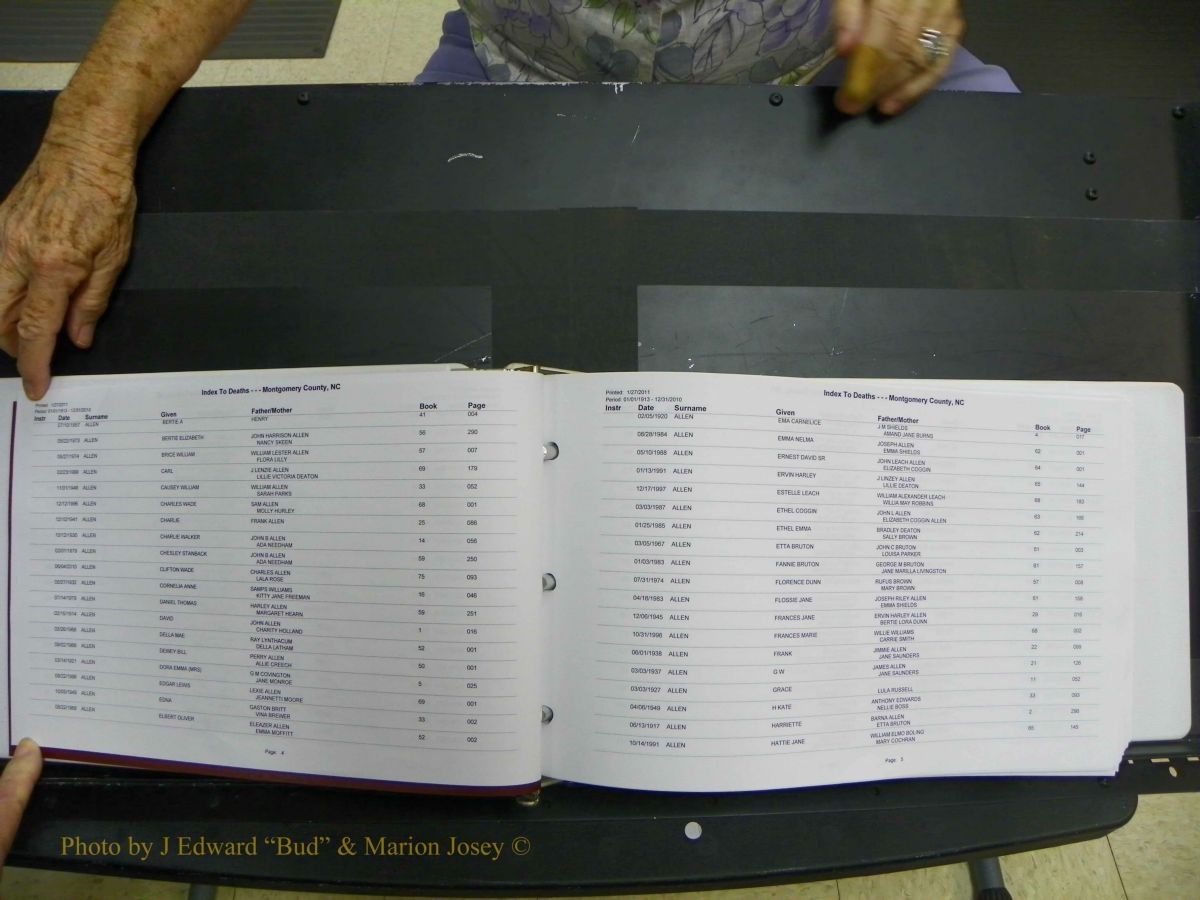 Index To Deaths - - - Montgomery County, NC
Printed: 1/27/2011
Period: 01/01/1913 - 12/31/2010
Instr Date Surname Given Father/Mother Book Page
ALLEN BERTIE A HENRY 41 004
ALLEN BERTIE ELIZABETH JOHN HARRISON ALLEN 56 290
NANCY SKEEN
ALLEN BRICE WILLIAM WILLIAM LESTER ALLEN 57 007
FLORA LILLY
ALLEN CARL J LENZIE ALLEN 69 179
LILLIE VICTORIA DEATON
ALLEN CAUSEY WILLIAM WILLIAM ALLEN 33 052
SARAH PARKS
ALLEN CHARLES WADE SAM ALLEN 68 001
MOLLY HURLEY
ALLEN CHARLIE FRANK ALLEN 25 086
ALLEN CHARLIE WALKER JOHN B ALLEN 14 056
ADA NEEDHAM
ALLEN CHESLEY STANBACK JOHN B ALLEN 59 250
ADA NEEDHAM
ALLEN CLIFTON WADE CHARLES ALLEN 75 093
LALA ROSE
ALLEN CORNELIA ANNE SAMPS WILLIAMS 16 046
KITTY JANE FREEMAN
ALLEN DANIEL THOMAS HARLEY ALLEN 59 251
MARGARET HEARN
ALLEN DAVID JOHN ALLEN 1 016
CHARITY HOLLAND
ALLEN DELLA MAE RAY LYNTHACUM 52 001
DELLA LATHAM
ALLEN DEWEY BILL PERRY ALLEN 50 001
ALLIE CREECH
ALLEN DORA EMMA (MRS) G M COVINGTON 5 025
JANE MONROE
ALLEN EDGAR LEWIS LEXIE ALLEN 69 001
JEANNETTI MOORE
ALLEN EDNA GASTON BRITT 33 002
VINA BREWER
ALLEN ELBERT OLIVER ELEAZER ALLEN 52 002
EMMA MOFFITT
Page: 4
Index To Deaths - - - Montgomery County, NC
Printed: 1/27/2011
Period: 01/01/1913 - 12/31/2010
Instr Date Surname Given Father/Mother Book Page
02/05/1920 ALLEN EMA CARNELICE J M SHIELDS 4 017
AMAND JANE BURNS
08/28/1984 ALLEN EMMA NELMA JOSEPH ALLEN 62 001
EMMA SHIELDS
05/10/1988 ALLEN ERNEST DAVID SR JOHN LEACH ALLEN 64 001
ELIZABETH COGGIN
01/13/1991 ALLEN ERVIN HARLEY J LINZEY ALLEN 65 144
LILLIE DEATON
12/17/1997 ALLEN ESTELLE LEACH WILLIAM ALEXANDER LEACH 68 183
WILLIA MAY ROBBINS
03/03/1987 ALLEN ETHEL COGGIN JOHN L ALLEN 63
ELIZABETH COGGIN ALLEN
01/25/1985 ALLEN ETHEL EMMA BRADLEY DEATON 62 214
SALLY BROWN
03/05/1967 ALLEN ETTA BRUTON JOHN C BRUTON 51 003
LOUISA PARKER
01/03/1983 ALLEN FANNIE BRUTON GEORGE M BRUTON 61 157
JANE MARILLA LIVINGSTON
07/31/1974 ALLEN FLORENCE DUNN RUFUS BROWN 57 008
MARY BROWN
04/18/1983 ALLEN FLOSSIE JANE JOSEPH RILEY ALLEN 61 158
EMMA SHIELDS
12/06/1945 ALLEN FRANCES JANE ERVIN HARLEY ALLEN 29 016
BERTIE LORA DUNN
10/31/1996 ALLEN FRANCES MARIE WILLIE WILLIAMS 68 002
CARRIE SMITH
06/01/1938 ALLEN FRANK JIMMIE ALLEN 22
JANE SAUNDERS
03/03/1937 ALLEN G W JAMES ALLEN 21 126
JANE SAUNDERS
03/03/1927 ALLEN GRACE LULA RUSSELL 11 052
04/06/1949 ALLEN H KATE ANTHONY EDWARDS 33 093
NELLIE BOSS
06/13/1917 ALLEN HARRIETTE BARNA ALLEN 2 290
ETTA BRUTON
10/14/1991 ALLEN HATTIE JANE WILLIAM ELMO BOLING 65 145
MARY COCHRAN
Page: 5
Photo by J Edward “Bud” & Marion Josey ©